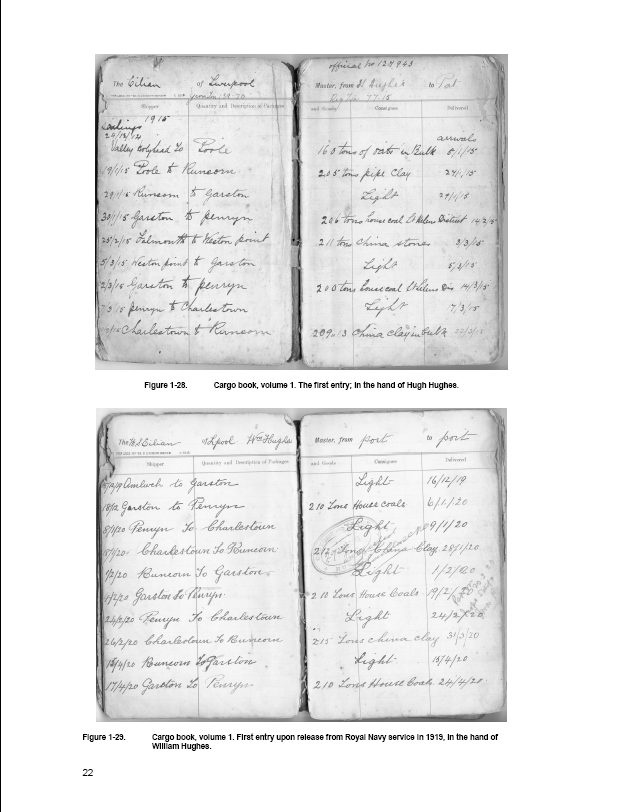 official no 127943
The Eilian of Liverpool Master, from H. Hughes to Port
Shipper Quantity and Description of Packages and Goods Consignee Delivered
1915
Sailings arrivals
Valley Holyhead to Poole 160 tons of oats in Bulk 8/1/15
19/1/15 Poole to Runcorn 205 tons pipe clay 27/1/15
29/1/15 Runcorn to Garston Light 29/1/15
30/1/15 Garston to penryn 206 tons house coal St Helens District 14/2/15
25/2/15 Falmouth to Weston point 211 tons China stones 3/3/15
5/3/15 Weston point to Garston Light 5/3/15
Garston to penryn 200 tons house coal St Helens Dis 14/3/15
penryn to Charlestown Light 17/3/15
Charlestown to Runcorn 209.13 China clay in bulk
Figure 1-28. Cargo book, volume 1. The first entry; in the hand of Hugh Hughes.
The M.S Eilian of Lpool Wm Hughes Master, from port to port
Shipper Quantity and Description of Packages and Goods Consignee Delivered
Amlwch to Garston Light 16/12/19
Garston to Penryn 210 Tons House coals 6/1/20
8/1/20 Penryn To Charlestown Light 9/1/20
Charlestown To Runcorn 212 Tons China Clay 28/1/20
1/2/20 Runcorn To Garston Light 1/2/20
Garston To Penryn 210 Tons House Coals 19/2/
24/2/20 Penryn To Charlestown Light 24/2/20
26/2/20 Charlestown To Runcorn 215 Tons china clay 31/3/20
15/4/20 Runcorn To Garston Light 15/4/20
17/4/20 Garston To Penryn 210 Tons House Coals 24/4/20
Figure 1-29. Cargo book, volume 1. First entry upon release from Royal Navy service in 1919, in the hand of
William Hughes.
22